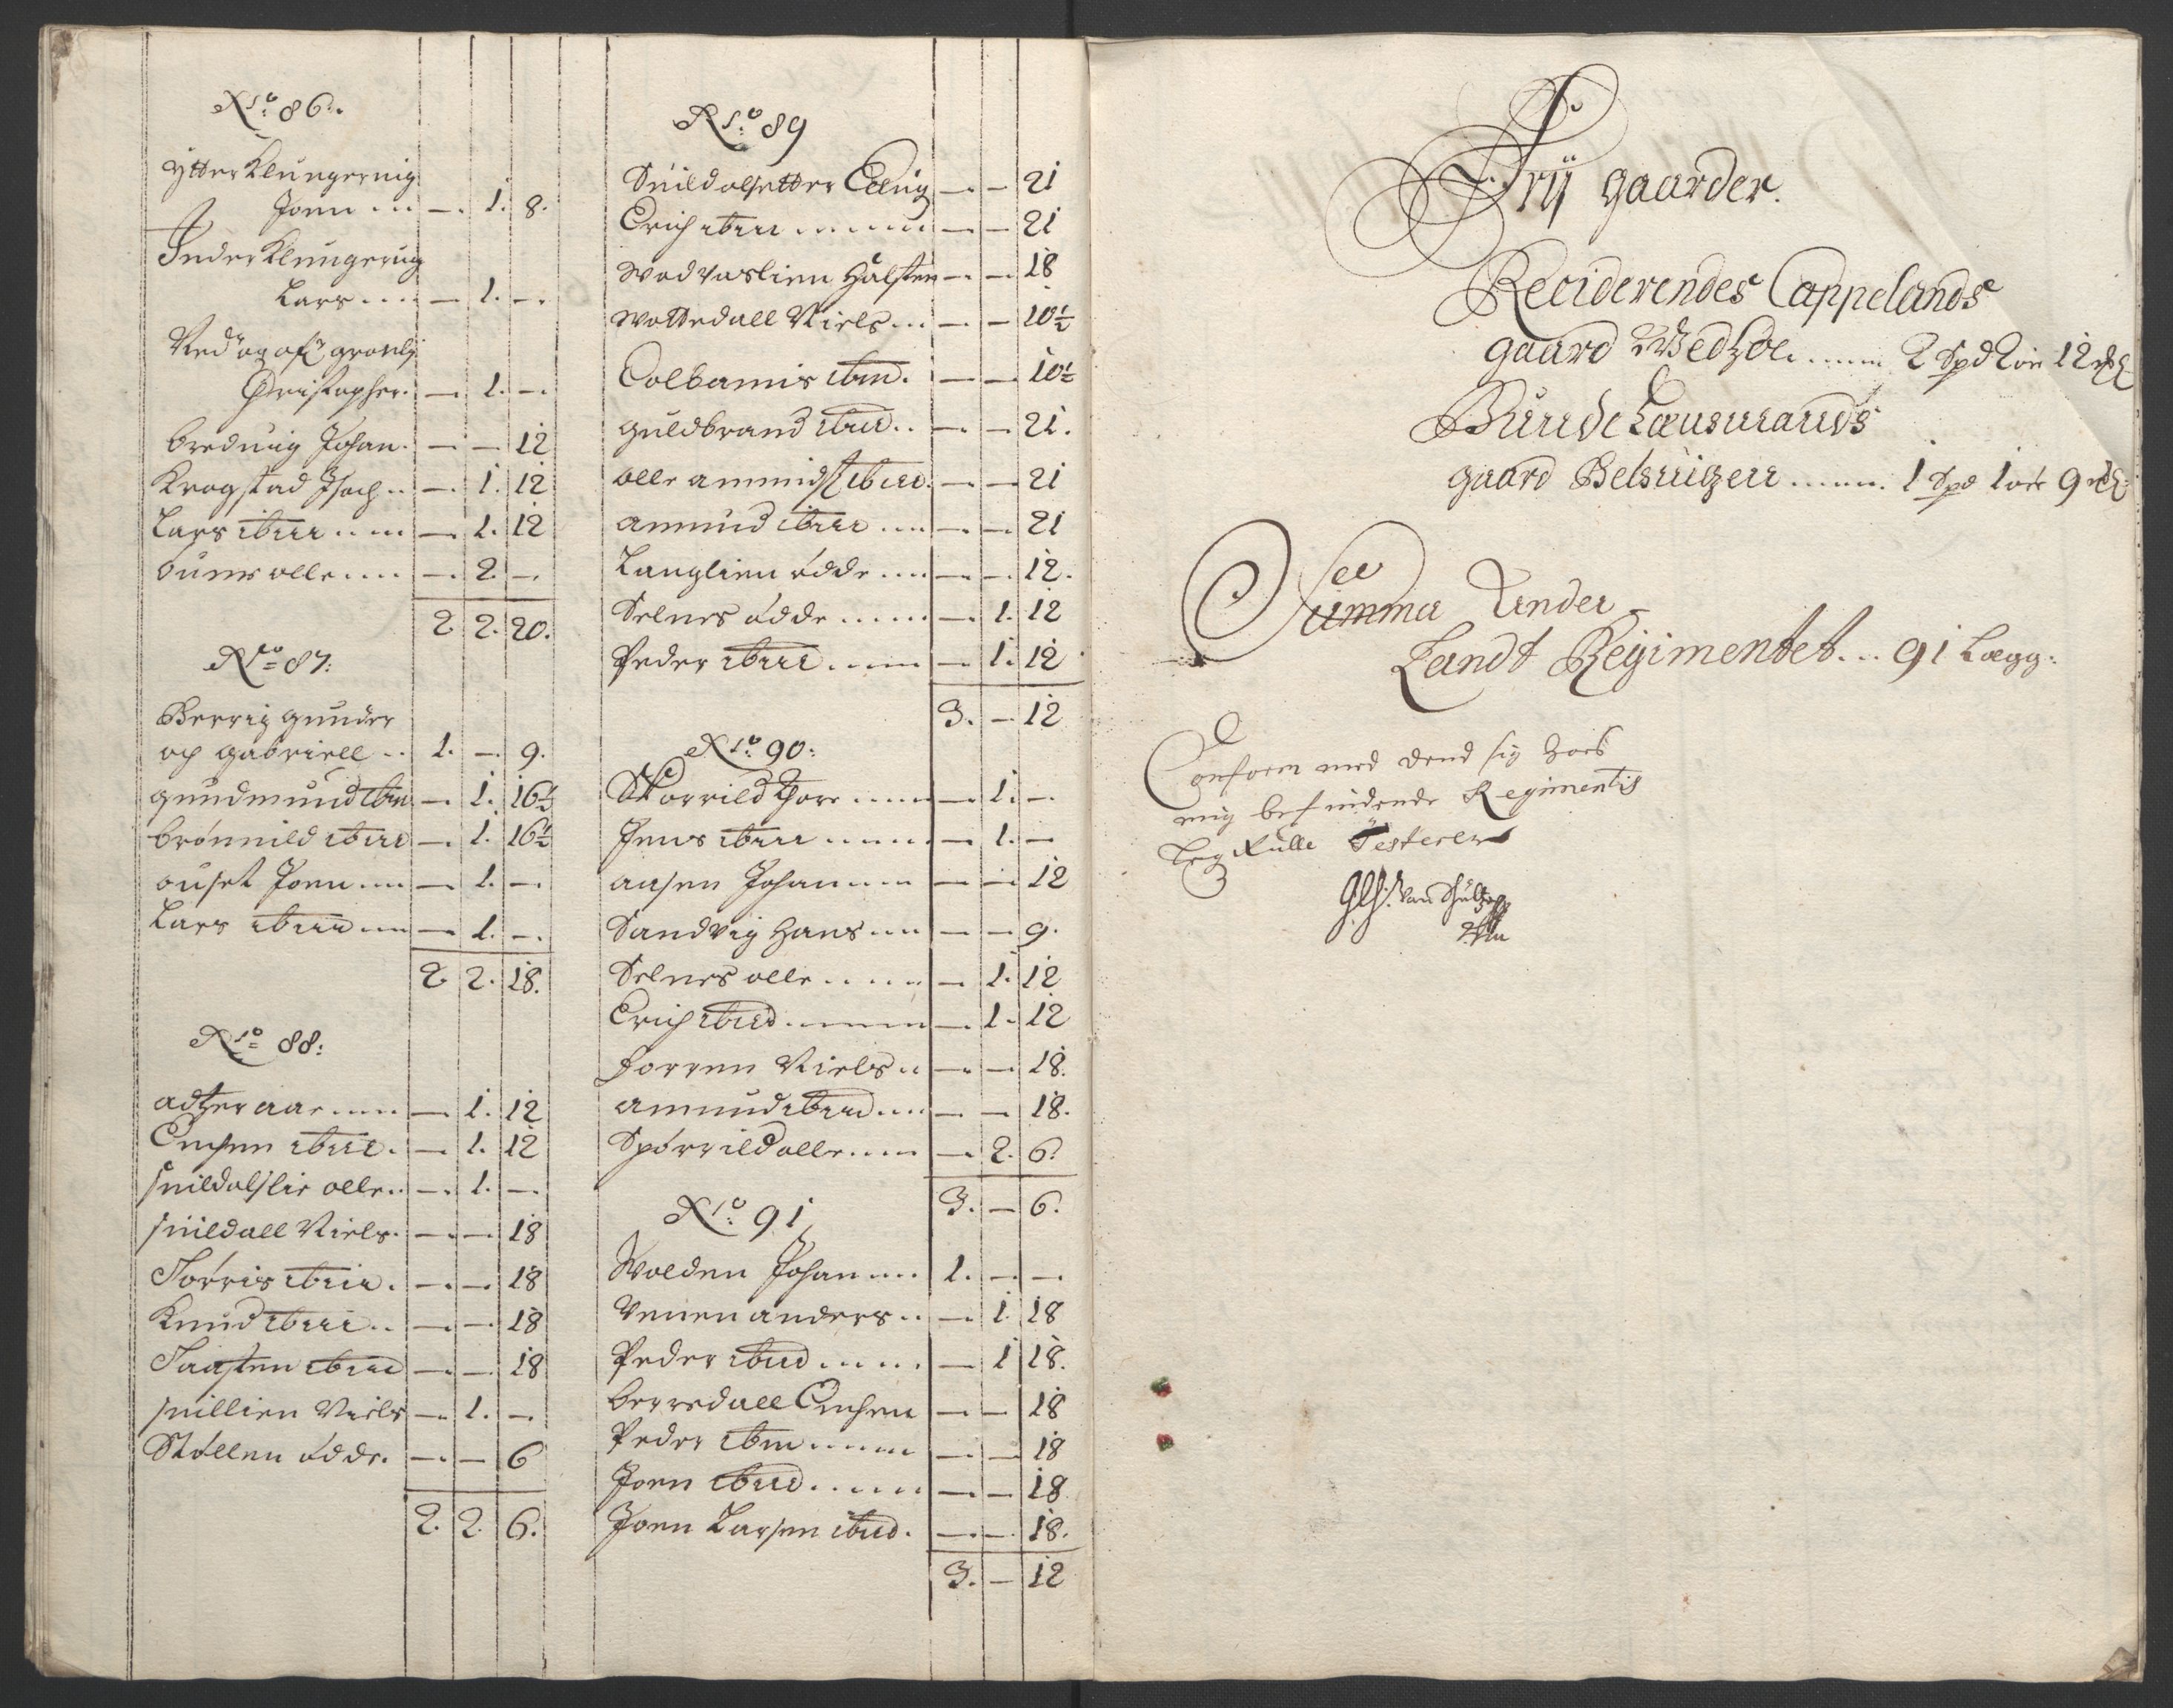 No: 86:
Ytter Klungervig
Joen .... — 1. 8.
Inder Klungervig
Lars .... — 1. —.
Ned og gronlj
Christopher. — 1. —.
bredviig Johan. — — 12
Krogstad Isach .. — 1. 12
Lars ibm .... — 1. 12
bunes olle .... — 2 —.
2 2. 20.
No= 87:
Berrig gunder
og gabriell .. 1. — 9.
gundmund ibm — 1. 16½
brönnild ibid — 1. 16½
ouset Joen .... — 1. —.
Lars ibid .... — 1. —.
2 2. 18.
No= 88:
adtzer aar .... — 1. 12
Enchen ibid . — 1. 12
snildalslie olle .. — 1. —.
snildall Niels . — — 18
Torris ibid . — — 18
Knud ibid .. — — 18
Taasten ibid — — 18
snillien Niels — 1. —
Stöllen ödde . — — 6
2. 2. 6.
No: 89
Snildalsetter Ellug — — 21
Erich ibm ...... — — 21
Wodvaslien Halsten — — 18
Wottedall Niels ... — — 10½
Colbannis ibm . — — 10½
guldbrand ibid .. — — 21.
olle ammidst ibid. — — 21
amund ibid .... — — 21
Langlien ödde .... — — 12.
Selnes ödde ..... — 1. 12
Peder ibid ..... — 1. 12
3. — 12
No: 90:
Skorrild Thore .... — 1. —.
Jens ibid ..... — 1. —
aasen Johan .... — — 12
Sandvig Hans .... — — 9.
Selnes olle ..... — 1. 12
Erich ibid ...... — 1. 12
forren Niels .. — — 18.
amund ibid .... — — 18.
Spörrild olle .... — 2. 6.
3. — 6.
No: 91
Wolden Johan .... 1. — —
Venen anders .. — 1. 18
Peder ibid ..... — 1 18.
berredall Enchen — — 18
Peder ibm ..... — — 18
Joen ibid ..... — — 18
Joen Larsen ibid . — — 18.
3. — 12
Frij gaarder.
Reciderendes Cappelands
gaard Wedzöe ..... 2 Spd 2 ör 12 mrk
Bunde Lensmands
gaard Belsuigen ..... 1 Spd 1 ör 9 mrk
Summa under
Landt Regimentet ... 91 Lægg:
Conform med dend sig hoes
mig befindende Regimentis
Leg Rulle Testerer
van Schultz